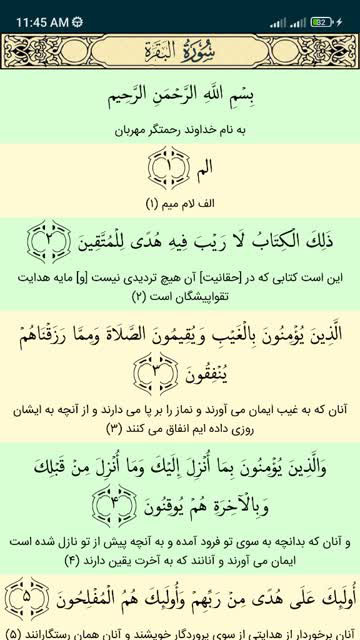 11:45 AM
82
سُورَةُ البَقَرَة
بِسْمِ اللَّهِ الرَّحْمَنِ الرَّحِيمِ
به نام خداوند رحمتگر مهربان
الم ﴿١﴾
الف لام میم (۱)
ذَلِكَ الْكِتَابُ لَا رَيْبَ فِيهِ هُدًى لِلْمُتَّقِينَ ﴿٢﴾
این است کتابی که در [حقانیت] آن هیچ تردیدی نیست [و] مایه هدایت
تقواپیشگان است (۲)
الَّذِينَ يُؤْمِنُونَ بِالْغَيْبِ وَيُقِيمُونَ الصَّلَاةَ وَمِمَّا رَزَقْنَاهُمْ
يُنْفِقُونَ ﴿٣﴾
آنان که به غیب ایمان می آورند و نماز را بر پا می دارند و از آنچه به ایشان
روزی داده ایم انفاق می کنند (۳)
وَالَّذِينَ يُؤْمِنُونَ بِمَا أُنْزِلَ إِلَيْكَ وَمَا أُنْزِلَ مِنْ قَبْلِكَ
وَبِالْآخِرَةِ هُمْ يُوقِنُونَ ﴿۴﴾
و آنان که بدانچه به سوی تو فرود آمده و به آنچه پیش از تو نازل شده است
ایمان می آورند و آنانند که به آخرت یقین دارند (۴)
أُولَئِكَ عَلَى هُدًى مِنْ رَبِّهِمْ وَأُولَئِكَ هُمُ الْمُفْلِحُونَ ﴿۵﴾
آنان برخوردار از هدایتی از سوی پروردگار خویشند و آنان همان رستگارانند (۵)